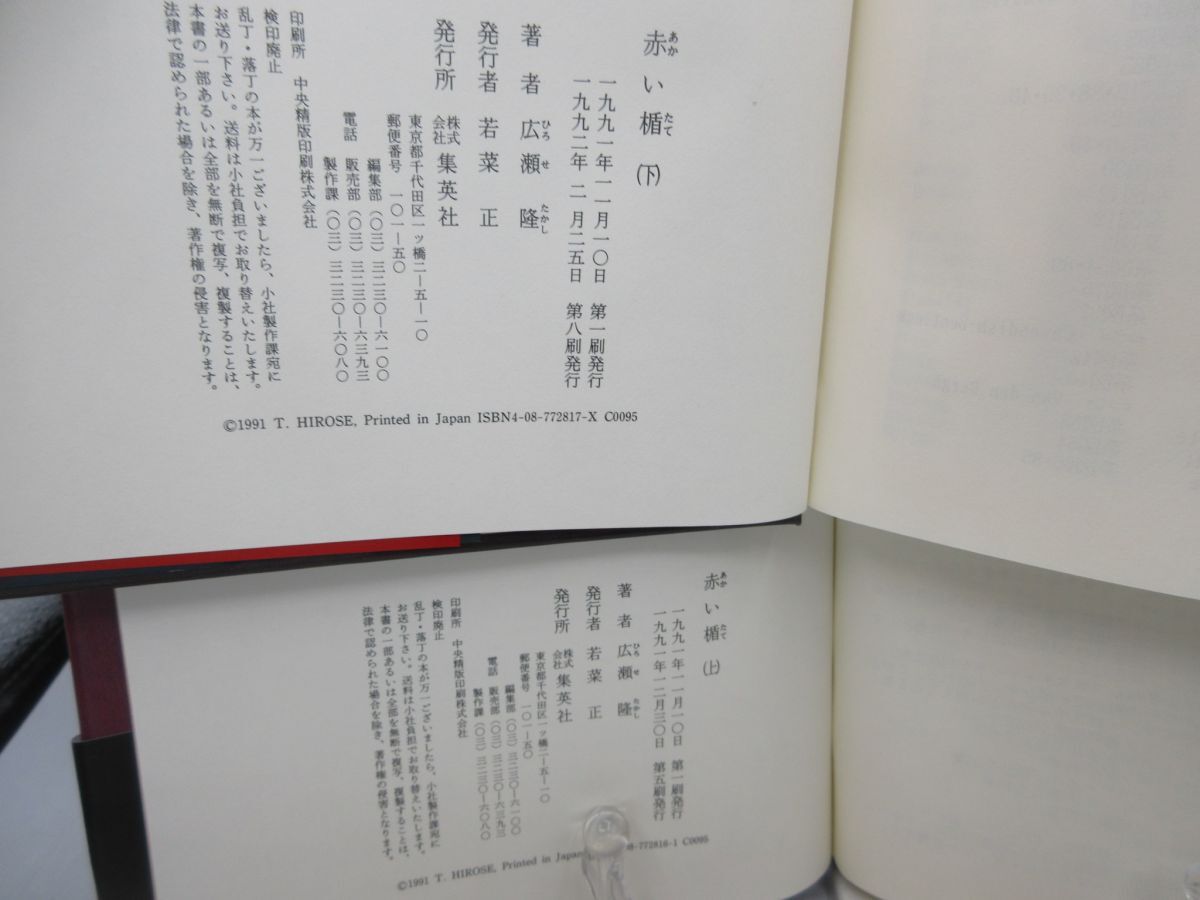 赤い楯（下）
あか
たて
一九九一年一一月一〇日　第一刷発行
一九九二年　二月二五日　第八刷発行
著者　広瀬　隆
ひろせ
たかし
発行者　若菜　正
発行所　株式会社　集英社
東京都千代田区一ッ橋二―五―一〇
郵便番号　一〇一―五〇
編集部（〇三）三二三〇―六一〇〇
電話　販売部（〇三）三二三〇―六三九三
製作課（〇三）三二三〇―六〇八〇
印刷所　中央精版印刷株式会社
検印廃止
乱丁・落丁の本が万一ございましたら、小社製作課宛に
お送り下さい。送料は小社負担でお取り替えいたします。
本書の一部あるいは全部を無断で複写、複製することは、
法律で認められた場合を除き、著作権の侵害となります。
©1991 T. HIROSE, Printed in Japan ISBN4-08-772817-X C0095
赤い楯（上）
あか
たて
一九九一年一一月一〇日　第一刷発行
一九九一年一二月三〇日　第五刷発行
著者　広瀬　隆
ひろせ
たかし
発行者　若菜　正
発行所　株式会社　集英社
東京都千代田区一ッ橋二―五―一〇
郵便番号　一〇一―五〇
編集部（〇三）三二三〇―六一〇〇
電話　販売部（〇三）三二三〇―六三九三
製作課（〇三）三二三〇―六〇八〇
印刷所　中央精版印刷株式会社
検印廃止
乱丁・落丁の本が万一ございましたら、小社製作課宛に
お送り下さい。送料は小社負担でお取り替えいたします。
本書の一部あるいは全部を無断で複写、複製することは、
法律で認められた場合を除き、著作権の侵害となります。
©1991 T. HIROSE, Printed in Japan 08-772816-1 C0095